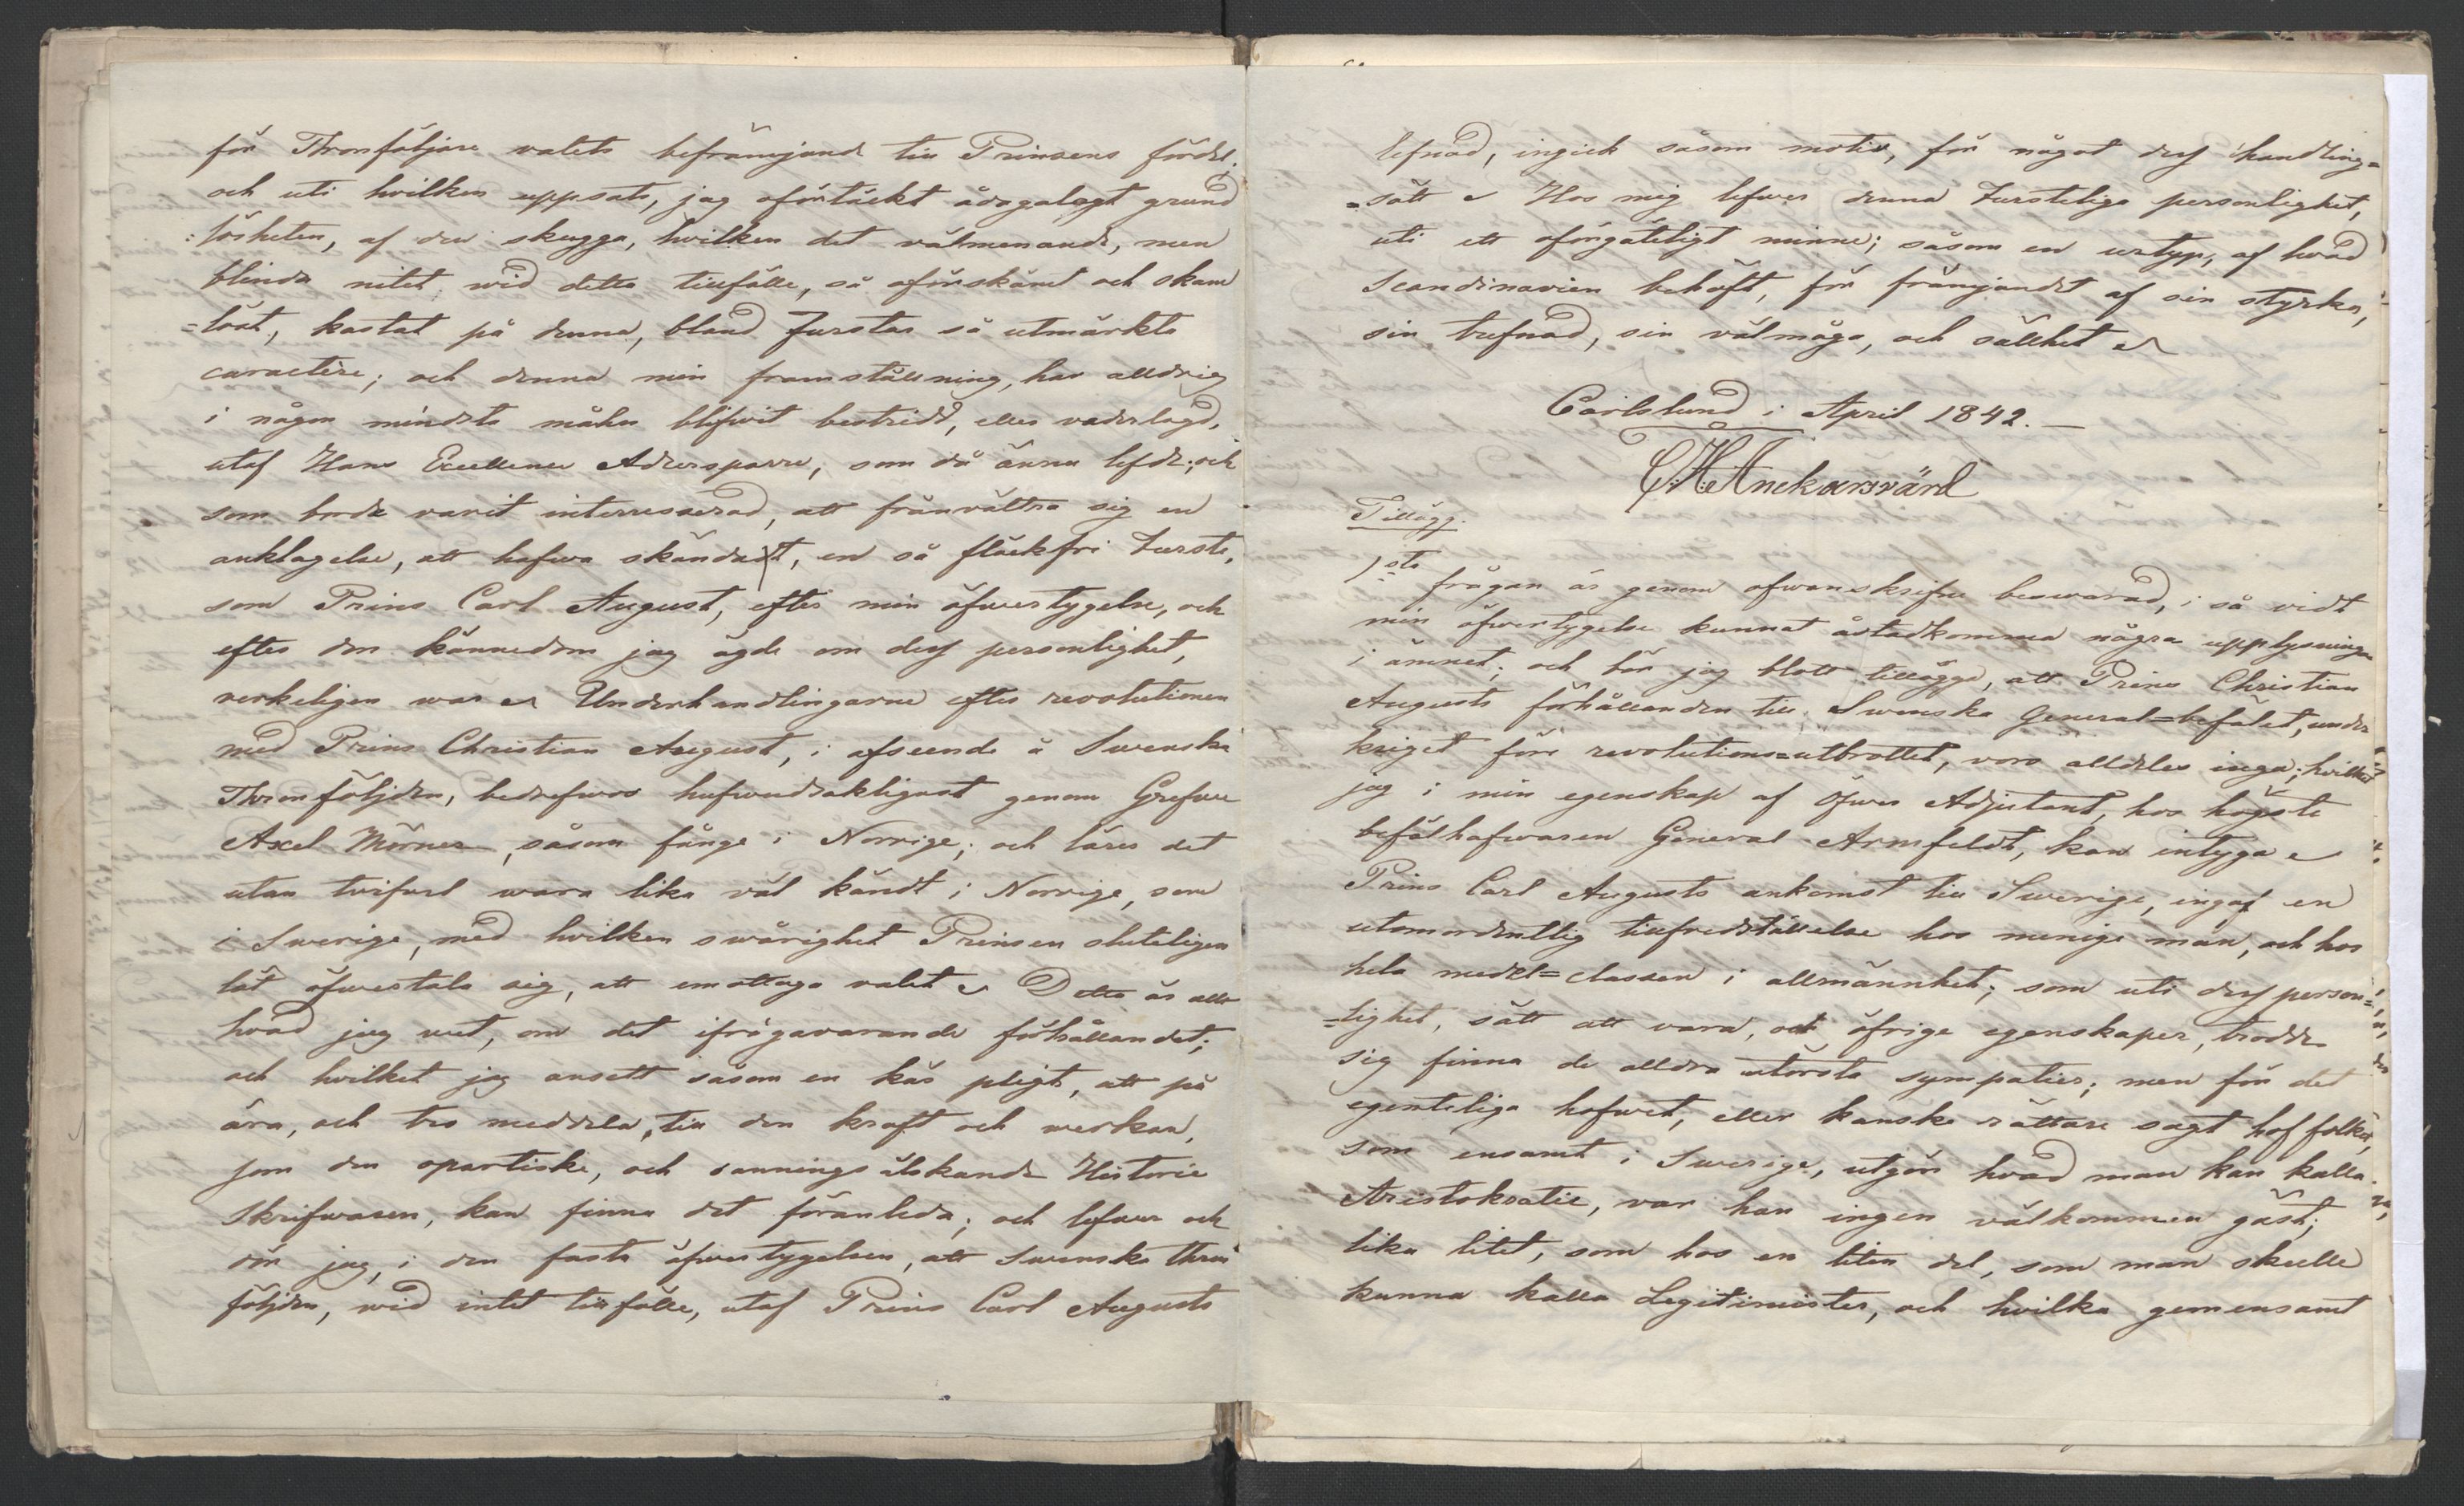 för Thronföljare valets befrämjand till Prinsens fördel;
och uti hvilken uppsats, jag oförtäckt ådagalagt grund
=lösheten, af den skugga, hvilken det välmenande, men
blinda nitet wid detta tillfälle, så oförskämt och skam
=löst, kastat på denna, bland Furstar så utmärkta
caractère; och denna min framställning, har alldrig
i någon mindsta måhn blifwit bestridd, eller vederlagd,
utaf Hans Excellence Adlersparre, som då ännu lefde; och
som borde varit interresserad, att frånvältra sig en
anklagelse, att hafwa skändat, en så fläckfri Furste,
som Prins Carl August, efter min öfwertygelse, och
efter den kännedom jag ägde om dess personlighet,
verkeligen war. Underhandlingarne efter revolutionen
med Prins Christian August, i afseende å Swenska
Thronföljden, bedrefwos hufwudsakligast genom Grefwe
Axel Mörner, såsom fånge i Norrige; och lärer det
utan twifwel wara lika väl kändt i Norrige, som
i Swerige, med hvilken swårighet Prinsen sluteligen
lät öfwertala sig, att emottaga valet. Detta är allt
hvad jag wet, om det ifrågavarande förhållandet;
och hvilket jag ansett såsom en kär pligt, att på
ära, och tro meddela, till den kraft och werkan,
som den opartiske, och sannings älskande Historie
Skrifwaren, kan finna det föranleda; och lefwer och
dör jag, i den fasta öfwertygelsen, att Swenska thron
följden, wid intet tillfälle, utaf Prins Carl Augusts
lefnad, ingick såsom motiv, för något dess handling=
=sätt. Hos mig lefwer denna Fursteliga personlighet,
uti ett oförgäteligt minne; såsom en urtyp, af hwad
Scandinavien behöft, för främjandet af sin styrka,
sin trefnad, sin välmåga, och sällhet.
Carlslund i April 1842.
C.H. Anckarsvärd
Tillägg.
1sta frågan är genom ofwanskrifne beswarad, i så vidt
min öfwertygelse kunnat åstadkomma några upplysningar
i ämnet; och bör jag blott tillägga, att Prins Christian
Augusts förhållanden till Swenska General=befälet, under
kriget före revolutions=utbrottet, voro alldeles inga; hvilket
jag i min egenskap af Öfwer Adjutant, hos högste
befälhafwaren General Armfeldt, kan intyga.
Prins Carl Augusts ankomst till Swerige, ingaf en
utomordentlig tillfredställelse hos menige man, och hos
hela medel=classen i allmännhet; som uti dess person=
=lighet, sätt att vara, och öfrige egenskaper, trodde
sig finna de alldra största sympatier; men för det
egenteliga hofwet, eller kanske rättare sagt hoffolket,
som ensamt i Swerige, utgör hvad man kan kalla
Aristokratie, var han ingen välkommen gäst;
lika litet, som hos en liten del, som man skulle
kunna kalla Legitimister, och hvilka gemensamt